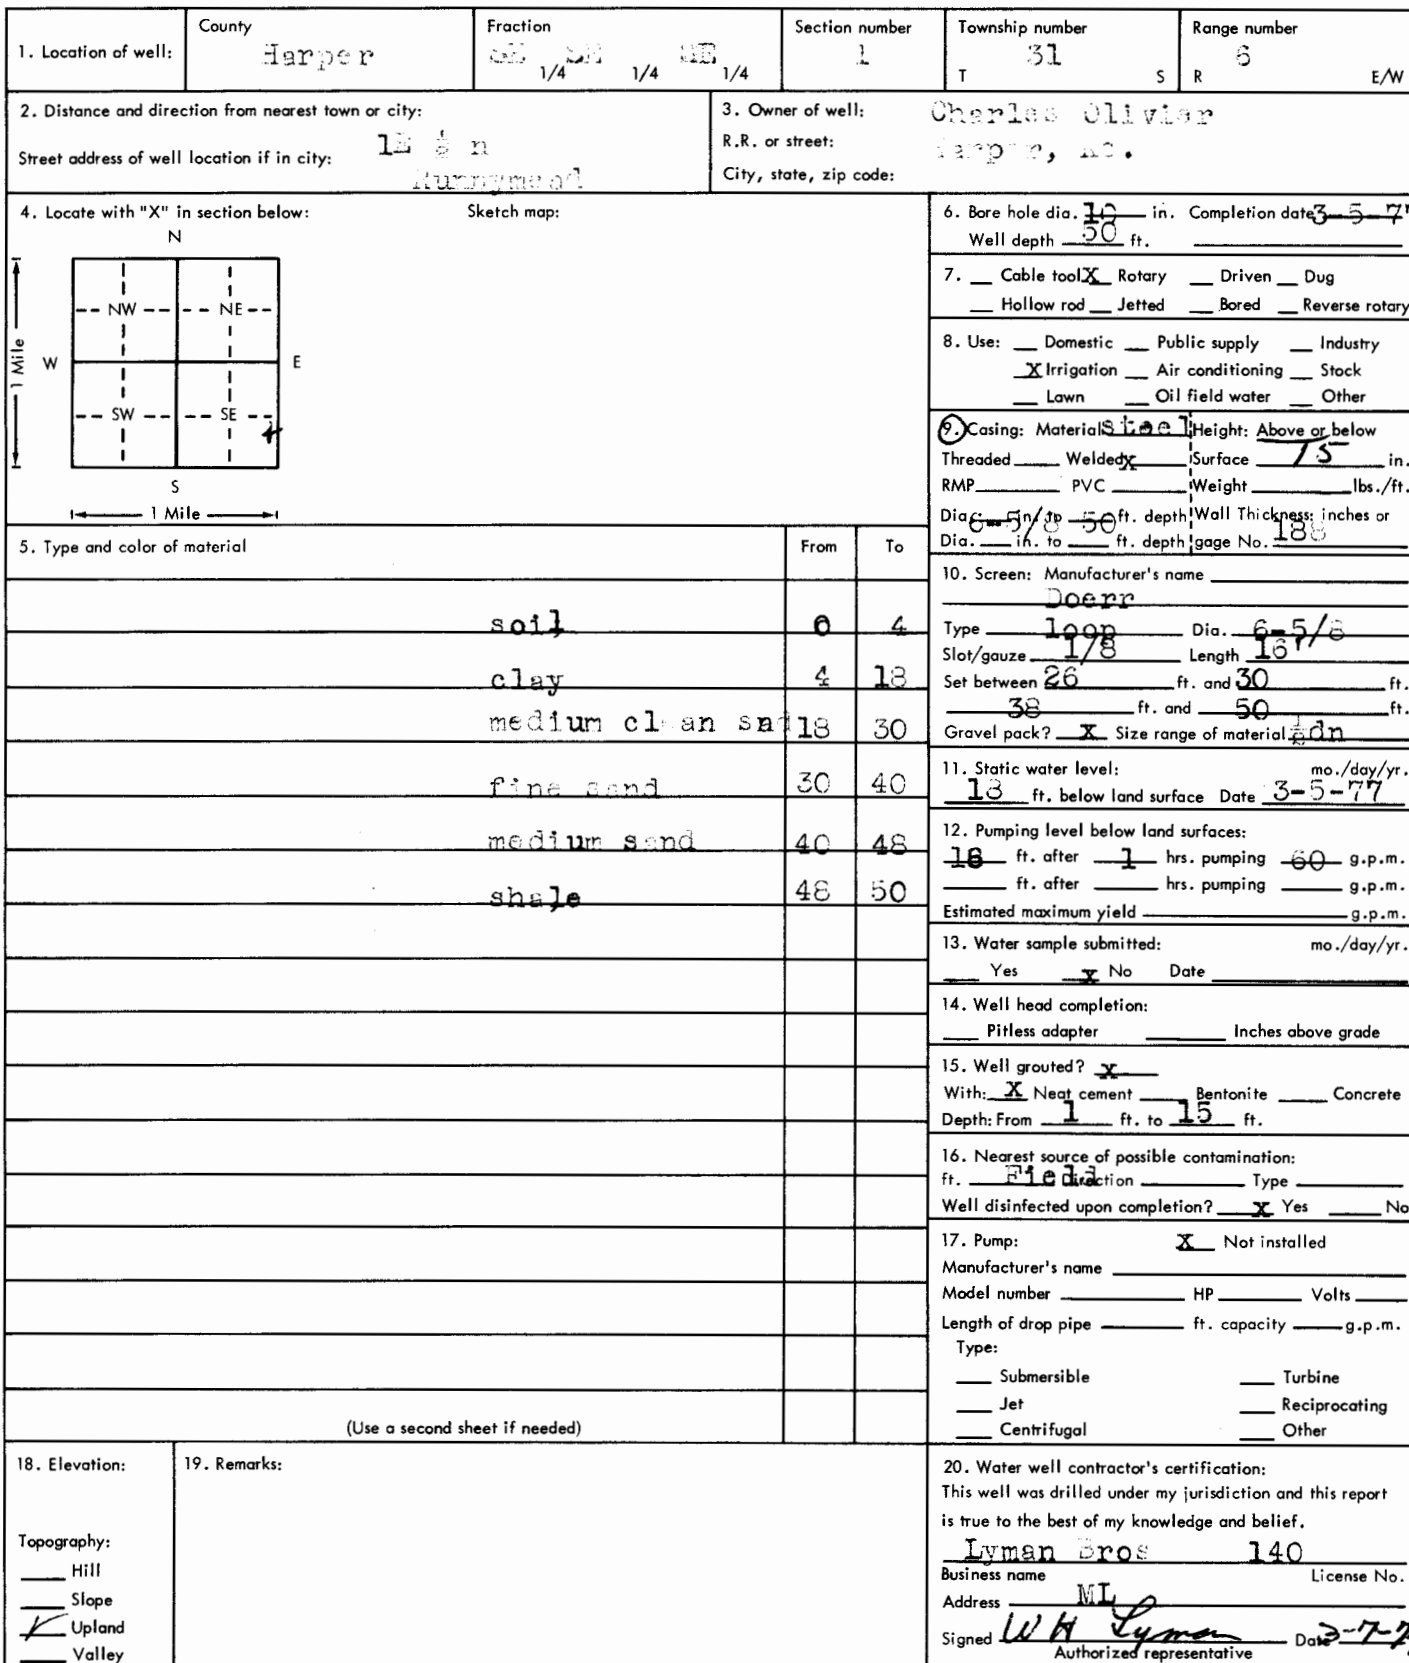 1. Location of well: County Harper Fraction SE 1/4 SE 1/4 SE 1/4 Section number 1 Township number T 31 S Range number R 6 E/W
2. Distance and direction from nearest town or city: 1E ½ n
Street address of well location if in city: Runnymead
3. Owner of well: Charles Olivier
R.R. or street: Harper, Ks.
City, state, zip code:
4. Locate with "X" in section below: Sketch map:
N
NW NE
W E
1 Mile
SW SE
S
1 Mile
5. Type and color of material From To
soil 0 4
clay 4 18
medium cl an snd 18 30
fine sand 30 40
medium sand 40 48
shale 48 50
(Use a second sheet if needed)
6. Bore hole dia. in. Completion date 3-5-7
Well depth 50 ft.
7. Cable tool X Rotary Driven Dug
Hollow rod Jetted Bored Reverse rotary
8. Use: Domestic Public supply Industry
X Irrigation Air conditioning Stock
Lawn Oil field water Other
9. Casing: Material steel Height: Above or below
Threaded Welded x Surface 15 in.
RMP PVC Weight lbs./ft.
Dia. 6-5/8 in. to 50 ft. depth Wall Thickness: inches or
Dia. in. to ft. depth gage No. 188
10. Screen: Manufacturer's name
Doerr
Type loop Dia. 6-5/8
Slot/gauze 1/8 Length 16'
Set between 26 ft. and 30 ft.
38 ft. and 50 ft.
Gravel pack? X Size range of material dn
11. Static water level: mo./day/yr.
18 ft. below land surface Date 3-5-77
12. Pumping level below land surfaces:
ft. after 1 hrs. pumping 60 g.p.m.
ft. after hrs. pumping g.p.m.
Estimated maximum yield g.p.m.
13. Water sample submitted: mo./day/yr.
Yes x No Date
14. Well head completion:
Pitless adapter Inches above grade
15. Well grouted? x
With: X Neat cement Bentonite Concrete
Depth: From 1 ft. to 15 ft.
16. Nearest source of possible contamination:
ft. Field Direction Type
Well disinfected upon completion? x Yes No
17. Pump: X Not installed
Manufacturer's name
Model number HP Volts
Length of drop pipe ft. capacity g.p.m.
Type:
Submersible Turbine
Jet Reciprocating
Centrifugal Other
18. Elevation:
Topography:
Hill
Slope
Upland
Valley
19. Remarks:
20. Water well contractor's certification:
This well was drilled under my jurisdiction and this report
is true to the best of my knowledge and belief.
Lyman Bros 140
Business name License No.
Address ML
Signed W H Lyman Date 3-7-7
Authorized representative